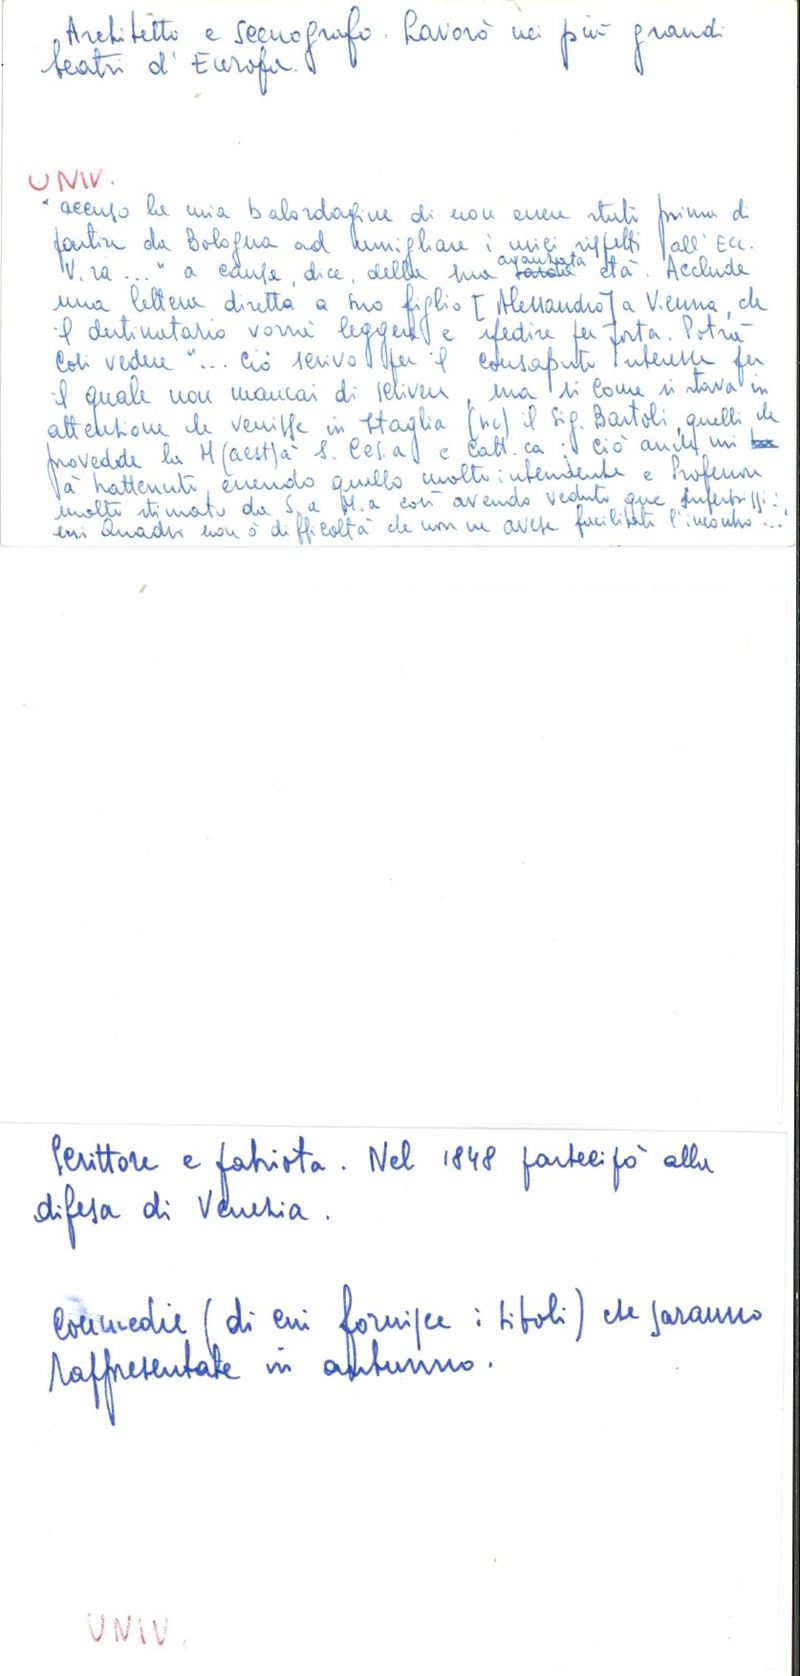 Architetto e scenografo. Lavorò nei più grandi
teatri d'Europa.
UNIV.
"accuso la mia balordagine di non essere stato prima di
partire da Bologna ad umigliare i miei rispetti all'Ecc.
V.ra ..." a causa, dice, della sua avanzata età. Acclude
una lettera diretta a suo figlio [Alessandro] a Vienna, che
il destinatario vorrà leggere e spedire per posta. Potrà
così vedere "... Ciò scrivo per il consaputo interesse per
il quale non mancai di scrivere, ma si come si stava in
attenzione che venisse in Itaglia (sic) il Sig. Bartoli, quelli che
provedde la M(aest)à S. Ces.a e Catt.ca: ciò anche mi
à trattenuto, essendo quello molto intendente e Professore
molto stimato da S.a M.a così avendo veduto que superbissi:
mi Quadri non ò difficoltà che non ne avese facilitato l'incontro..."
Scrittore e patriota. Nel 1848 partecipò alla
difesa di Venezia.
Commedie (di cui fornisce i titoli) che saranno
rappresentate in autunno.
UNIV.